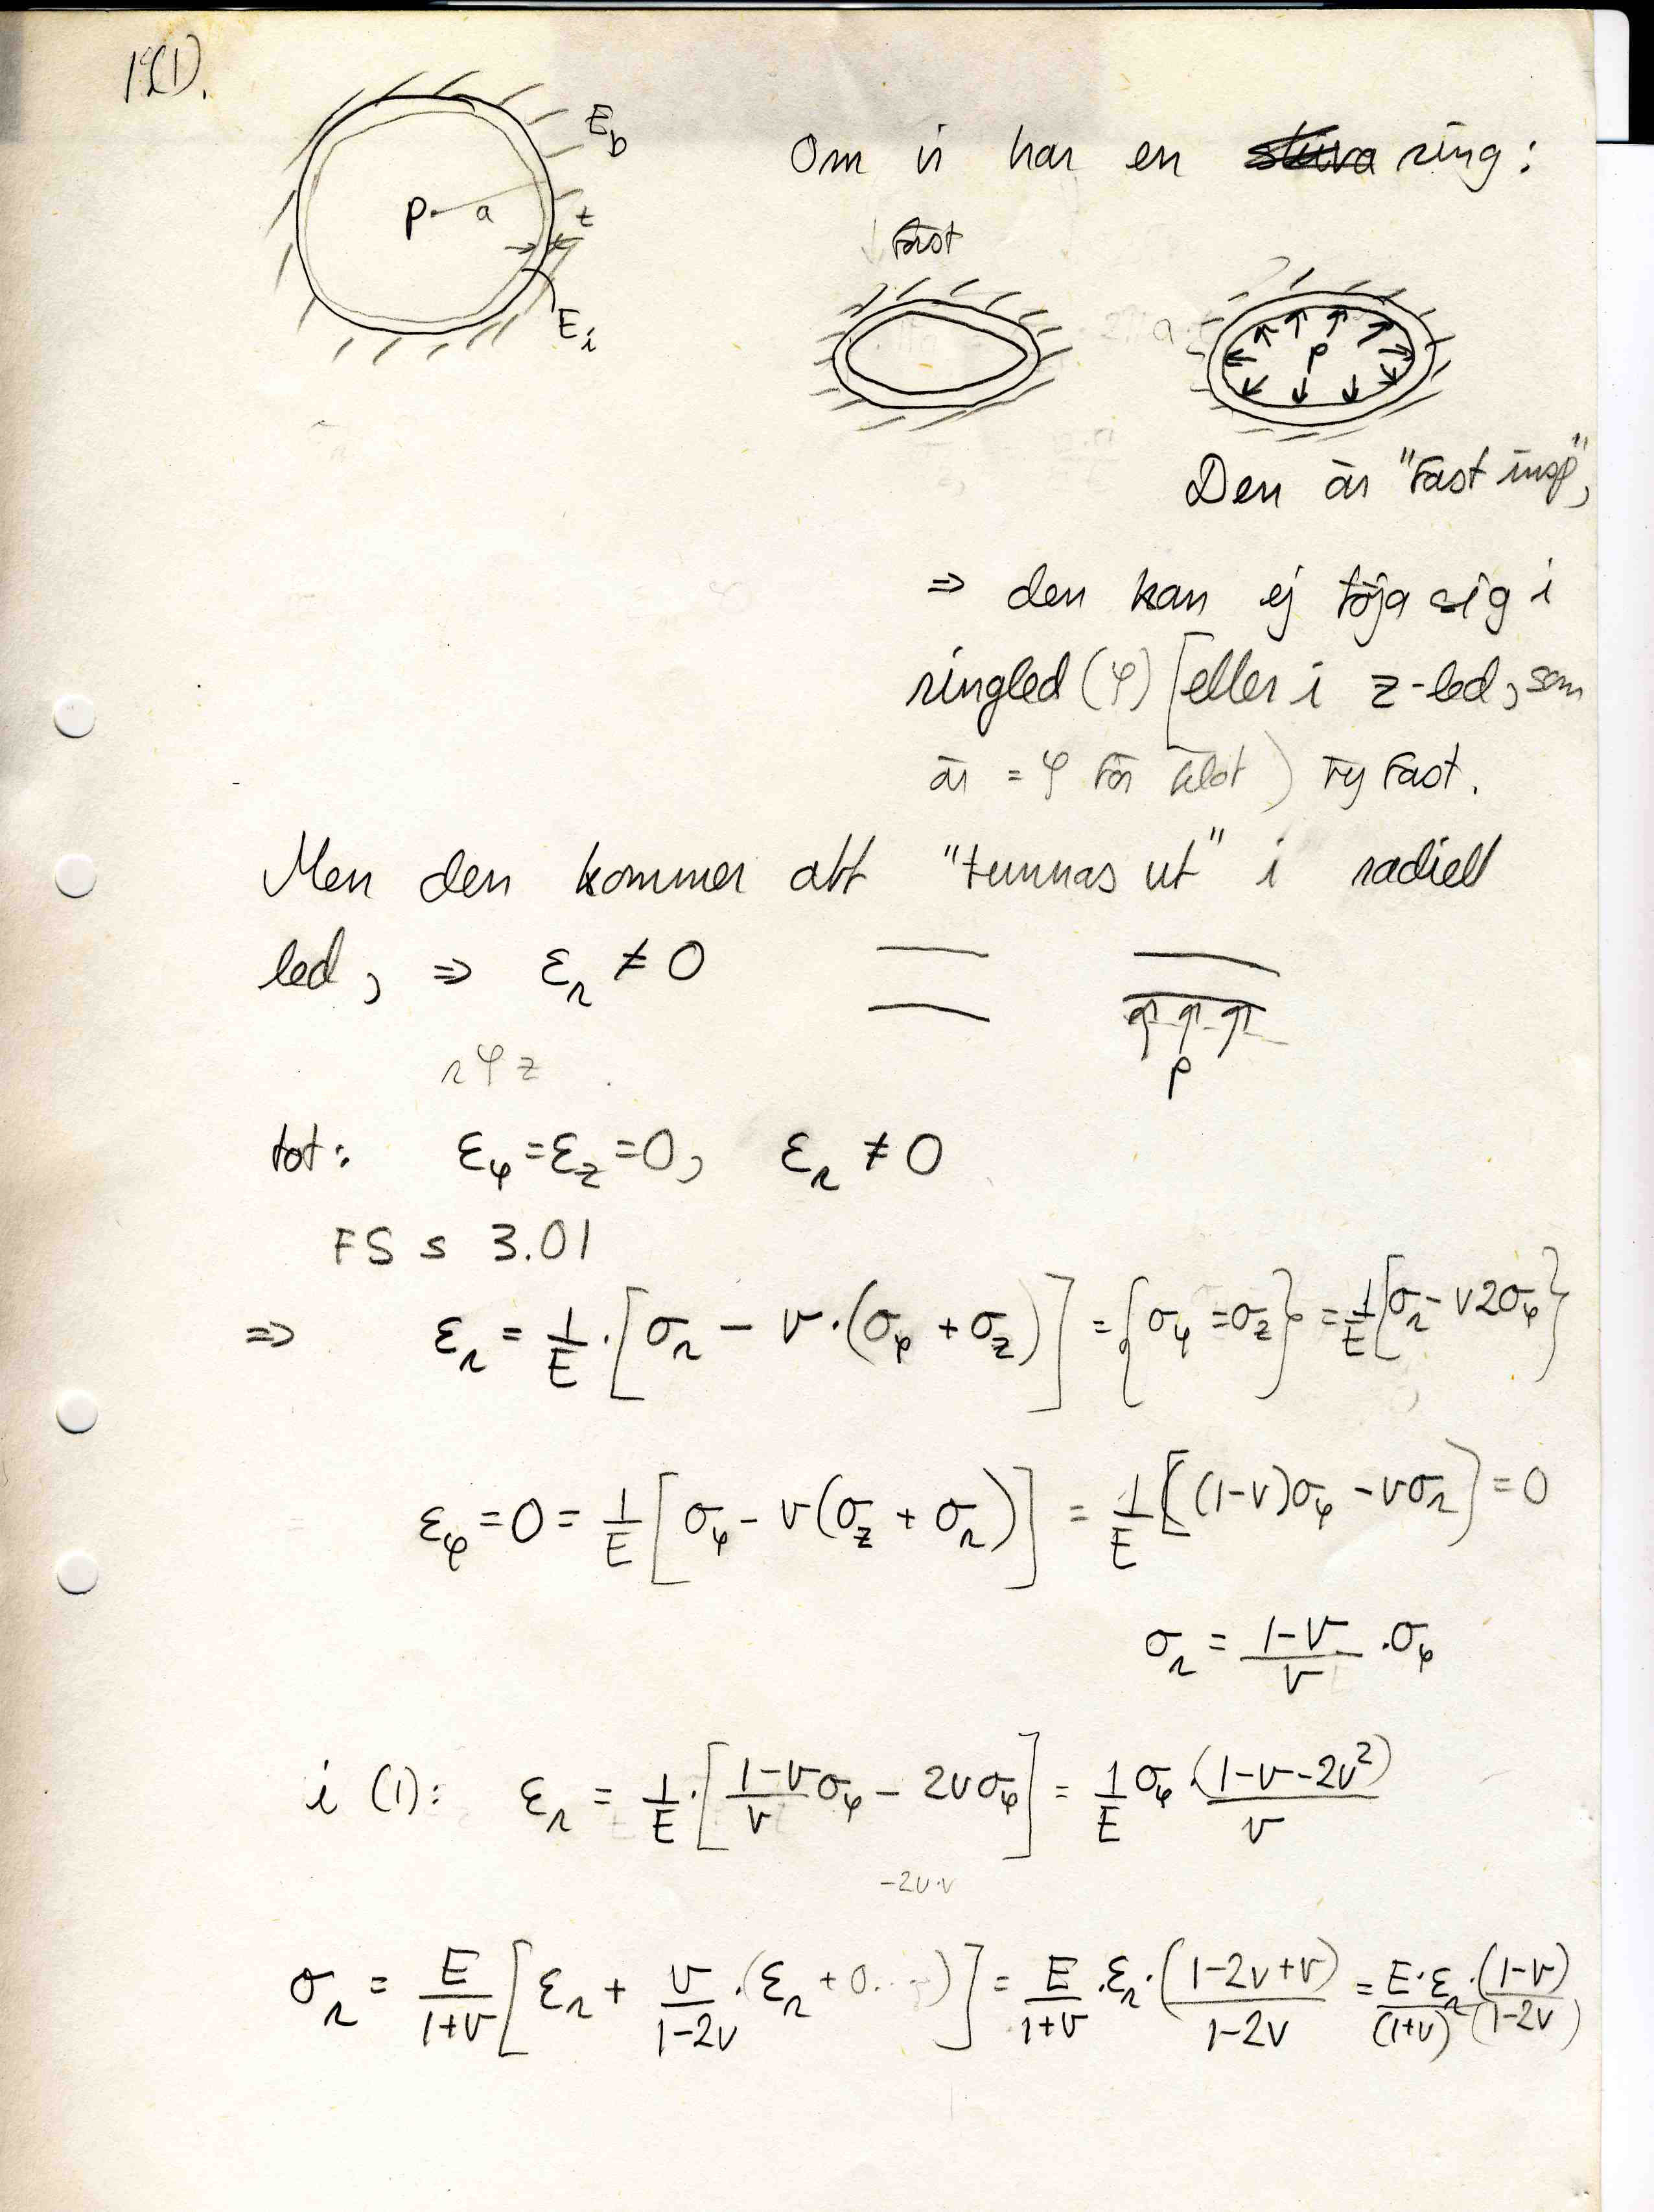 E_b
p a t
E_i
Om vi har en ring:
Fast
p
Den är "Fast insp",
⇒ den kan ej töja sig i
ringled (φ) [eller i z-led, som
är = φ för klot) ty Fast.
Men den kommer att "tunnas ut" i radiell
led, ⇒ ε_r ≠ 0
p
r φ z
tot: ε_φ = ε_z = 0, ε_r ≠ 0
FS s 3.01
⇒ ε_r = 1/E · [σ_r - ν · (σ_φ + σ_z)] = {σ_φ = σ_z} = 1/E [σ_r - ν2σ_φ}
ε_φ = 0 = 1/E [σ_φ - ν(σ_z + σ_r)] = 1/E [(1-ν)σ_φ - νσ_r] = 0
σ_r = (1-ν)/ν · σ_φ
i (1): ε_r = 1/E · [(1-ν)/ν σ_φ - 2νσ_φ] = 1/E σ_φ · (1-ν-2ν²)/ν
-2ν·ν
σ_r = E/(1+ν) [ε_r + ν/(1-2ν) · (ε_r + 0...)] = E/(1+ν) · ε_r · (1-2ν+ν)/(1-2ν) = E·ε_r/(1+ν) · (1-ν)/(1-2ν)